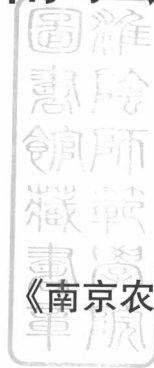 淮陰師範學院
圖書館藏書章
《南京农